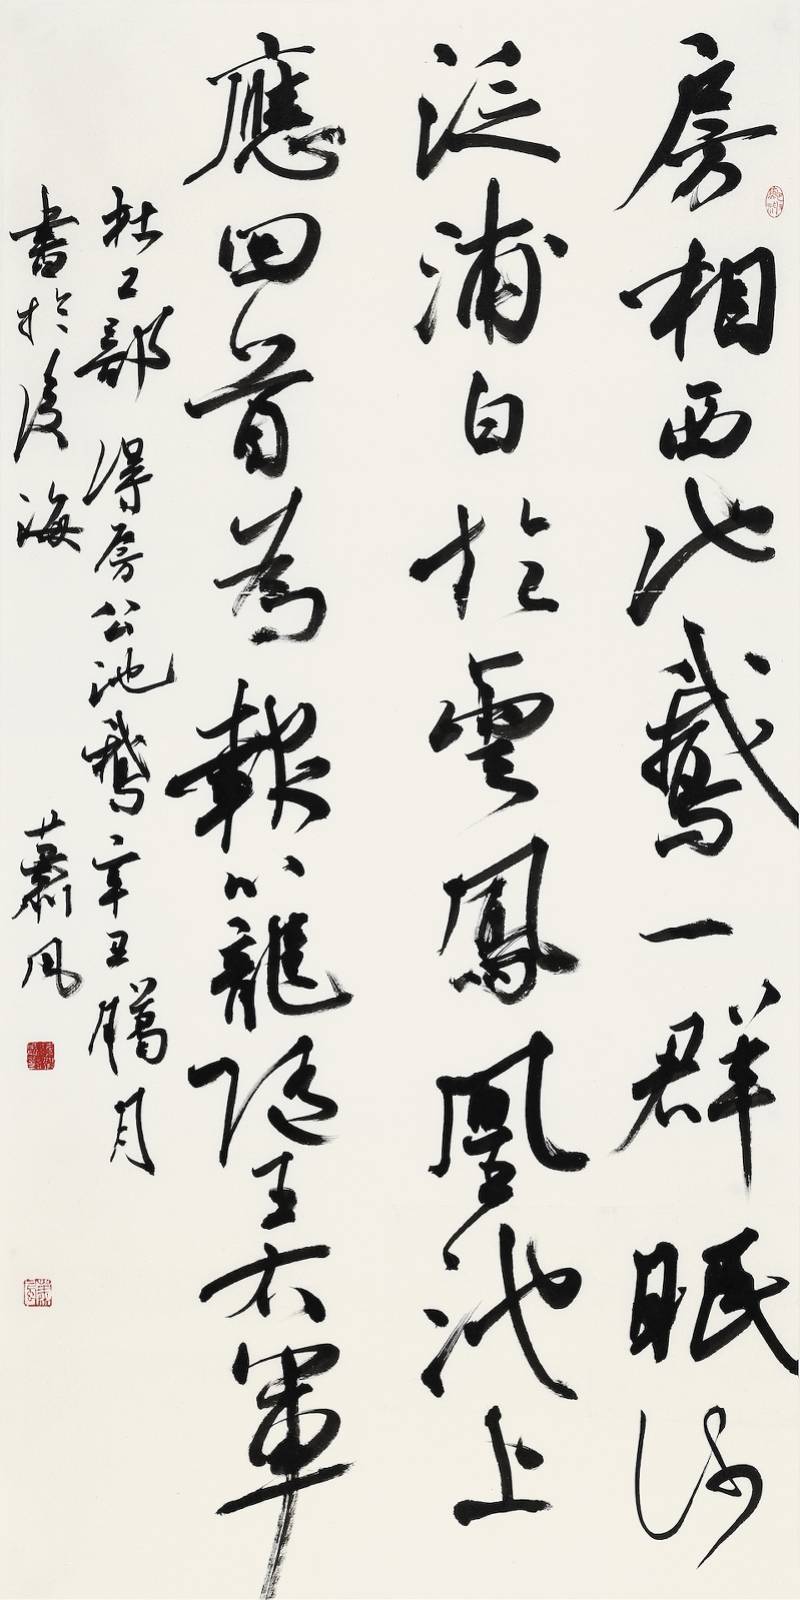 房相西池鵞一群眠沙
泛浦白於雲鳳凰池上
應回首為報籠隨王右軍
杜工部 得房公池鵞 辛丑臈月
書於後海 蕭風